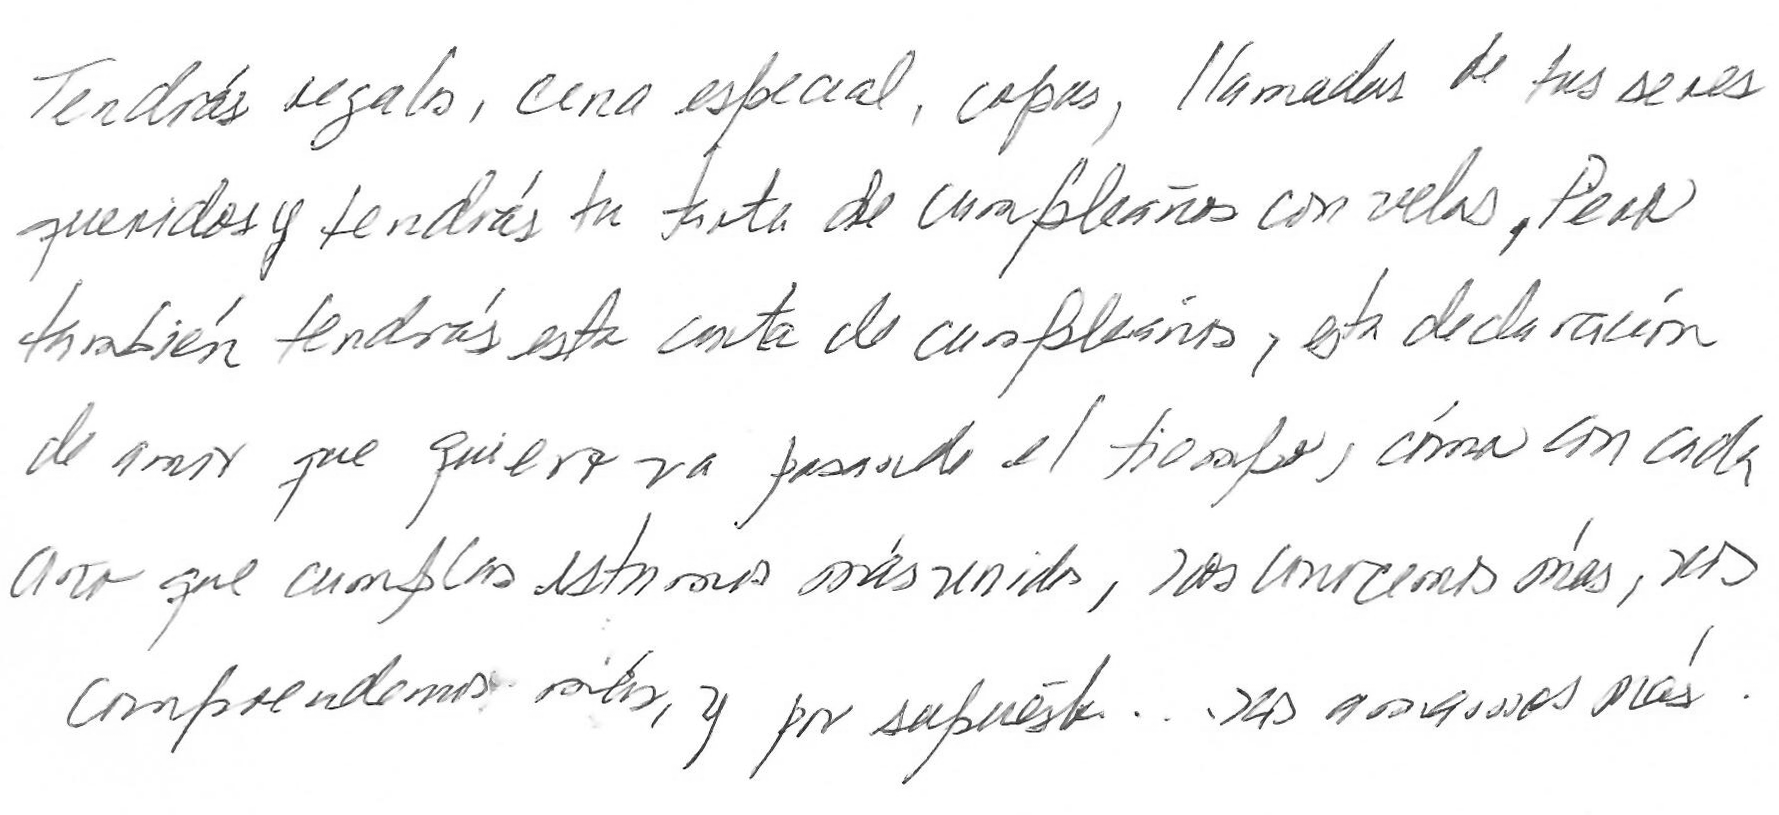 Tendrás regalos, cena especial, copas, llamadas de tus seres
queridos y tendrás tu tarta de cumpleaños con velas, Pero
también tendrás esta carta de cumpleaños, esta declaración
de amor que quiere va pasando el tiempo, cómo con cada
año que cumplas estamos más unidos, nos conocemos más, nos
comprendemos más, y por supuesto... nos amamos más.